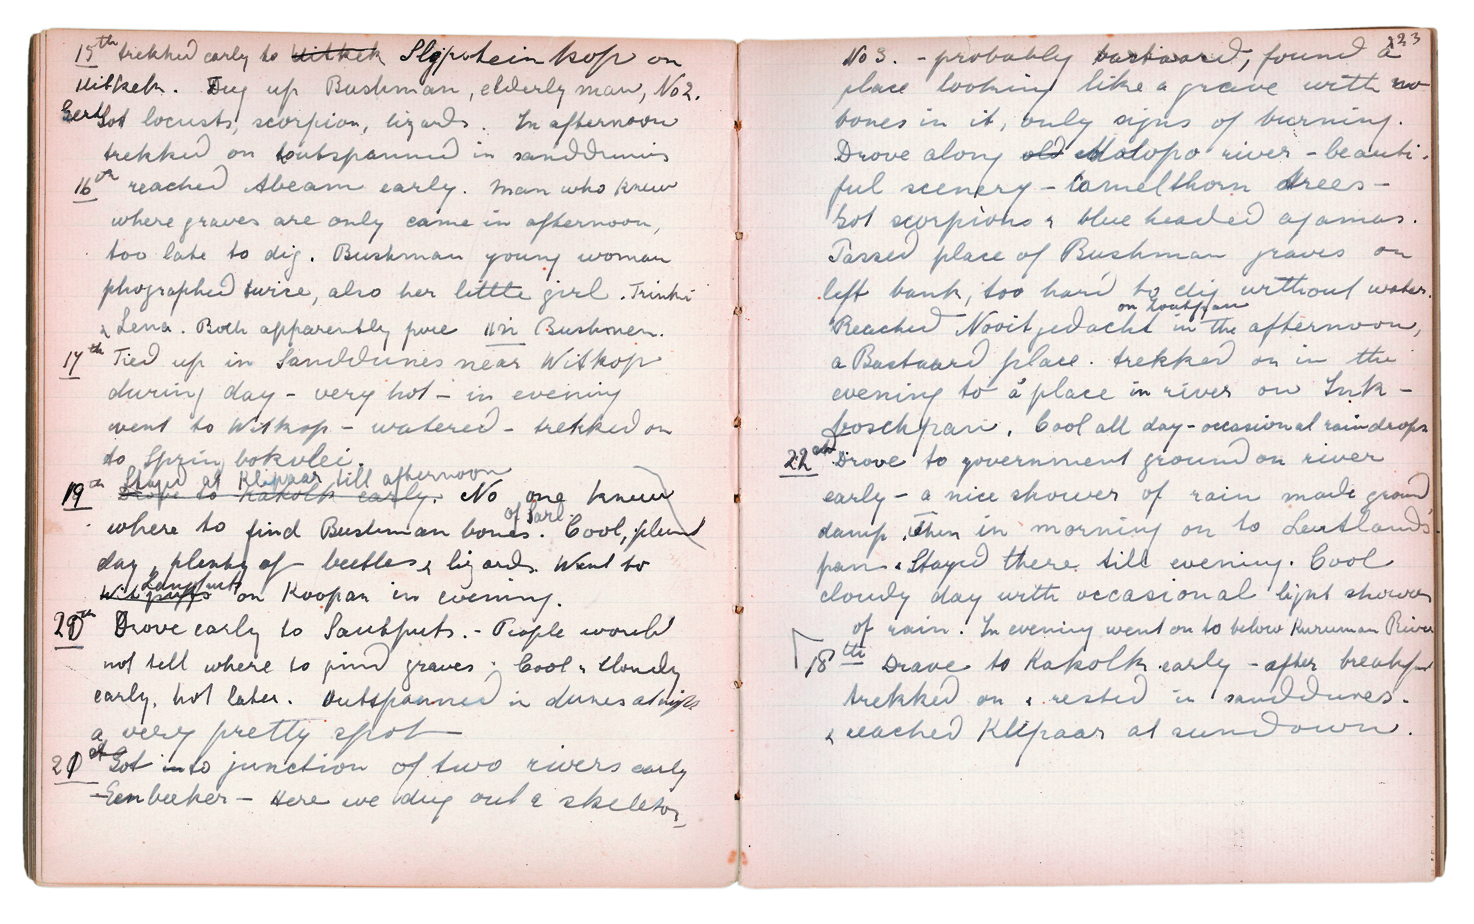 15th trekked early to Witkek Slypstein kop on
Witkek. Dug up Bushman, elderly man, No 2.
Got locusts, scorpion, lizards. In afternoon
trekked on & outspanned in sanddunes
16th reached Abeam early. Man who knew
where graves are only came in afternoon,
too late to dig. Bushman young woman
phographed twice, also her little girl. Trinki
& Lena. Both apparently pure Bushmen.
17th Tied up in Sanddunes near Witkop
during day - very hot - in evening
went to Witkop - watered - trekked on
to Sprinbokvlei.
Stayed at Klipaar till afternoon
19th Drove to Kakolk early. No one knew
of Sarl
where to find Bushman bones. Cool,
day, plenty of beetles & lizards. Went to
on Koopan in evening.
20th Drove early to Sautputs. - People would
not tell where to find graves. Cool & cloudy
early, hot later. Outspanned in dunes at night
a very pretty spot
21st Got into junction of two rivers early
- Eenbeeker - Here we dug out a skeleton,
223
No 3. - probably bastaard, found a
place looking like a grave with no
bones in it, only signs of burning.
Drove along old Molopo river - beauti-
ful scenery - Camelthorn trees -
Got scorpions & blue headed agamas.
Passed place of Bushman graves on
left bank, too hard to dig without water.
on Zoutpan
Reached Nooitgedacht in the afternoon,
a Bastaard place. trekked on in the
evening to a place in river on Ink-
boschpan. Cool all day - occasional raindrops
22nd Drove to government ground on river
early - a nice shower of rain made ground
damp. Then in morning on to Leutlands
pan. Stayed there till evening. Cool
cloudy day with occasional light showers
of rain. In evening went on to below Kuruman River
18th Drove to Kakolk early - after breakfast
trekked on & rested in sanddunes.
& reached Klipaar at sundown.